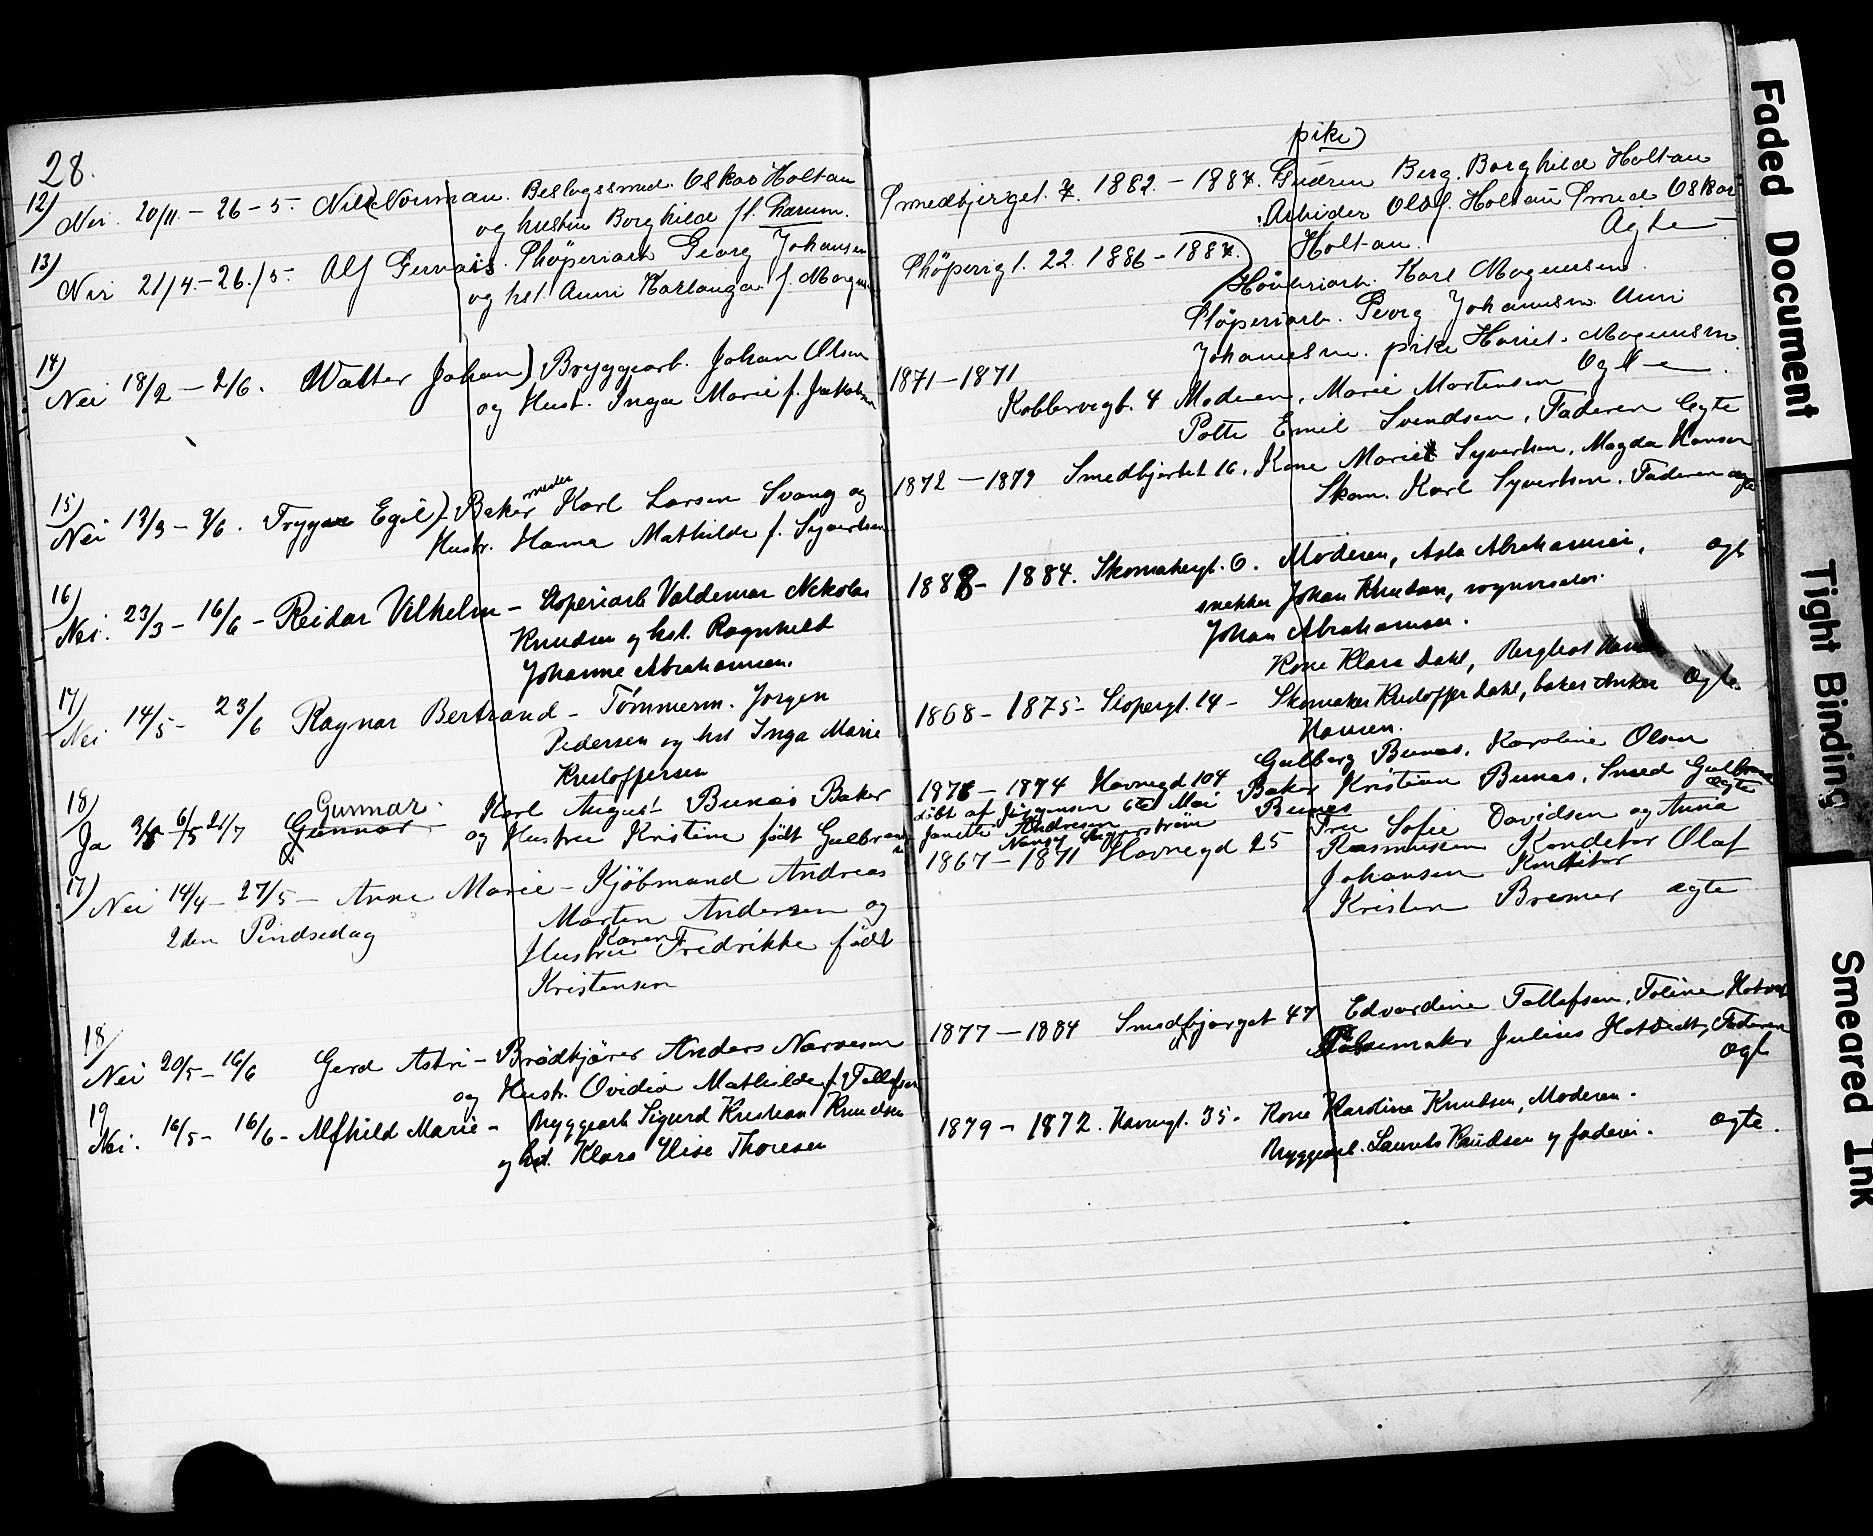 28.
12) Nei. 20/11 - 26-5- Nils Norman. Beslagssmed. Oskar Holtan
og hustru Borghilde f.
13) Nei 21/4 - 26/5- Alf Gervais. Støperiarb Georg Johansen
og hst. Anni f. Magn
14) Nei 18/2 - 2/6. Walter Johan) Bryggearb. Johan Olsen
og Hust. Inga Marie f. Jakobsen
15) Nei 13/3 - 9/6. Trygve Egil) Bakermester Karl Larsen Svang og
Hustr. Hanna Mathilde f. Syvertsen
16) Nei. 23/3 - 16/6 - Reidar Vilhelm - Støperiarb Valdemar Nikolai
Knudsen og hst. Ragnhild
Johanne Abrahamsen.
17) Nei 14/5- 23/6 Ragnar Bertrand - Tømmerm. Jørgen
Pedersen og hst Inga Marie
Kristoffersen
Gunnar.
18) Ja 6/5 21/7 Gunnar - Karl August Bunæs Baker
og Hustru Kristine født Gulbransen
17) Nei 14/4 - 27/5 - Anne Marie - Kjøbmand Andreas
Morten Andersen og
2den Pindsedag Hustru Karen Fredrikke født
Kristensen
18/ Nei 20/5 - 16/6 Gerd Astri - Brødkjører Anders Narvesen
og Hustr. Ovidia Mathilde f. Tollefsen
19 Nei. 16/5 - 16/6 - Alfhild Marie - Bryggearb Sigurd Kristian Knudsen
og hst. Klara Elise Thoresen
pike)
Smedbjerget. 7. 1882. - 1884. Gudrun Berg. Borghilde Holtan
Arbeider Olaf. Holtan Smed Oskar
Holtan. Ægte
Støperigt. 22. 1886 - 1887.
Høvleriarb. Karl Magnussen.
Støperiarb. Georg Johansen. Anni
Johansen. pike Harriet. Magnussen
1871 - 1871 Ægte
Kobbervegt. 4 Moderen, Marie Mortensen
Emil Svendsen, Faderen Ægte
1872 - 1879 Smedbjerket 16. Kone Marie Syvertsen, Magda Hansen
Skom. Karl Syvertsen. Faderen ægte
1888 - 1884. Skomakergt. 6. Moderen, Asla Abrahamsen, ægt
snekker Johan Knudsen,
Johan Abrahamsen.
Kone Klara Dahl, Bergliot Hansen
1868 - 1875 - Støpergt. 14 - Skomaker Kristoffer Dahl, baker Anker Ægte
Hansen.
Gulborg Bunæs. Karoline Olsen
1876 - 1874 Havnegd 104 Baker Kristian Bunæs. Smed Gulbrans
døbt af Jørgensen 6te Mai Bunæs ægte
Janette Andresen
Nancy Segerstrøm Fru Sofie Davidsen og Anna
1867 - 1871 Havnegd 25 Rasmussen Konditor Olaf
Johansen Konditor
Kristen Bremer ægte
1877 - 1884 Smedbjerget 47 Edvardine Tollefsen. Toline Hotvedt
Pølsemaker Julius Hotvedt, Faderen
Ægt
1879 - 1872. Havnegt. 35. Kone Karoline Knudsen, Moderen.
Bryggearb. Laurits Knudsen og faderen. ægte.
Faded Document
Tight Binding
Smeared Ink